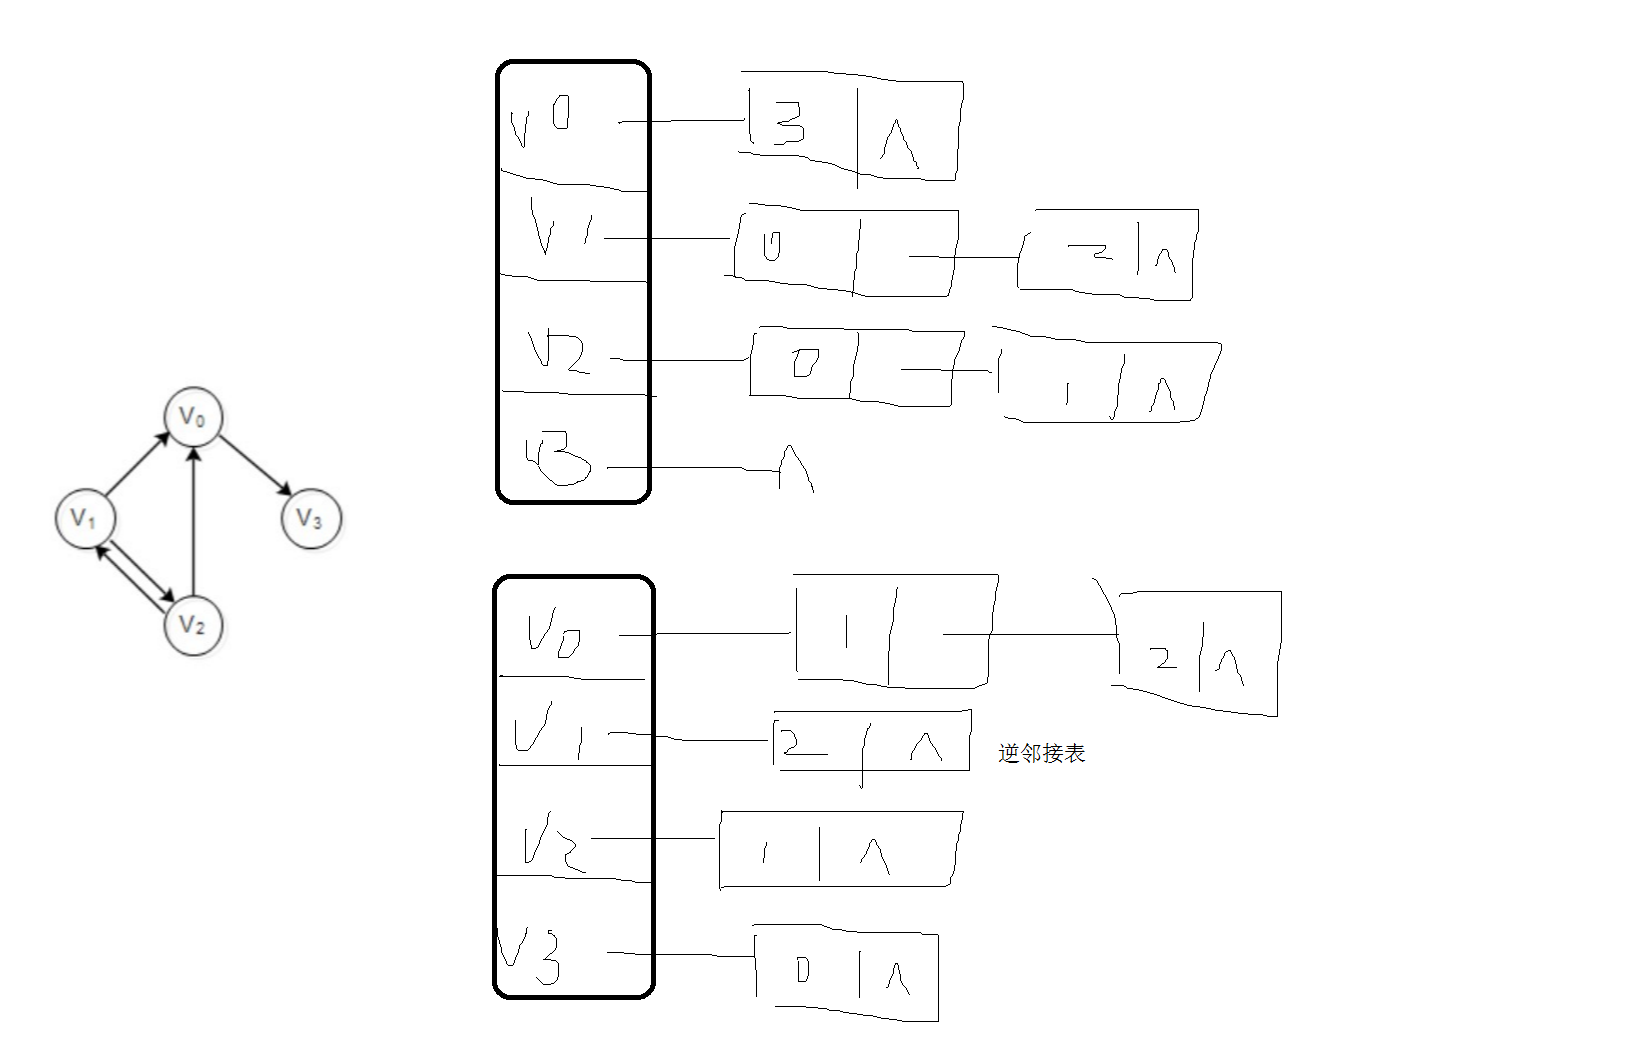 V0
V1
V3
V2
V0 3 ∧
V1 0 2 ∧
V2 0 1 ∧
V3 ∧
V0 1 2 ∧
V1 2 ∧
逆邻接表
V2 1 ∧
V3 0 ∧